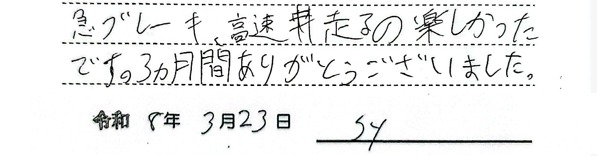 急ブレーキ、高速走るの楽しかった
です。3ヵ月間ありがとうございました。
令和 8年 3月23日 SY